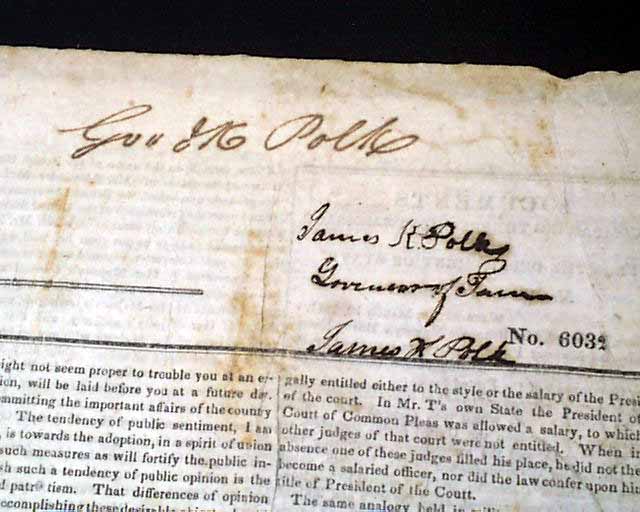 Gov J K Polk
James K. Polk
Governor of Tenn
James K Polk
No. 6032
ight not seem proper to trouble you at an e-
ion, will be laid before you at a future day,
mmitting the important affairs of the country
The tendency of public sentiment, I am
, is towards the adoption, in a spirit of union
such measures as will fortify the public in-
sh such a tendency of public opinion is the
d patriotism. That differences of opinion
accomplishing these desirable
gally entitled either to the style or the salary of the Presi
of the court. In Mr. T's own State the President of
Court of Common Pleas was allowed a salary, to which
other judges of that court were not entitled. When in
absence one of these judges filled his place, he did not the
become a salaried officer, nor did the law confer upon him
title of President of the Court.
The same analogy held in